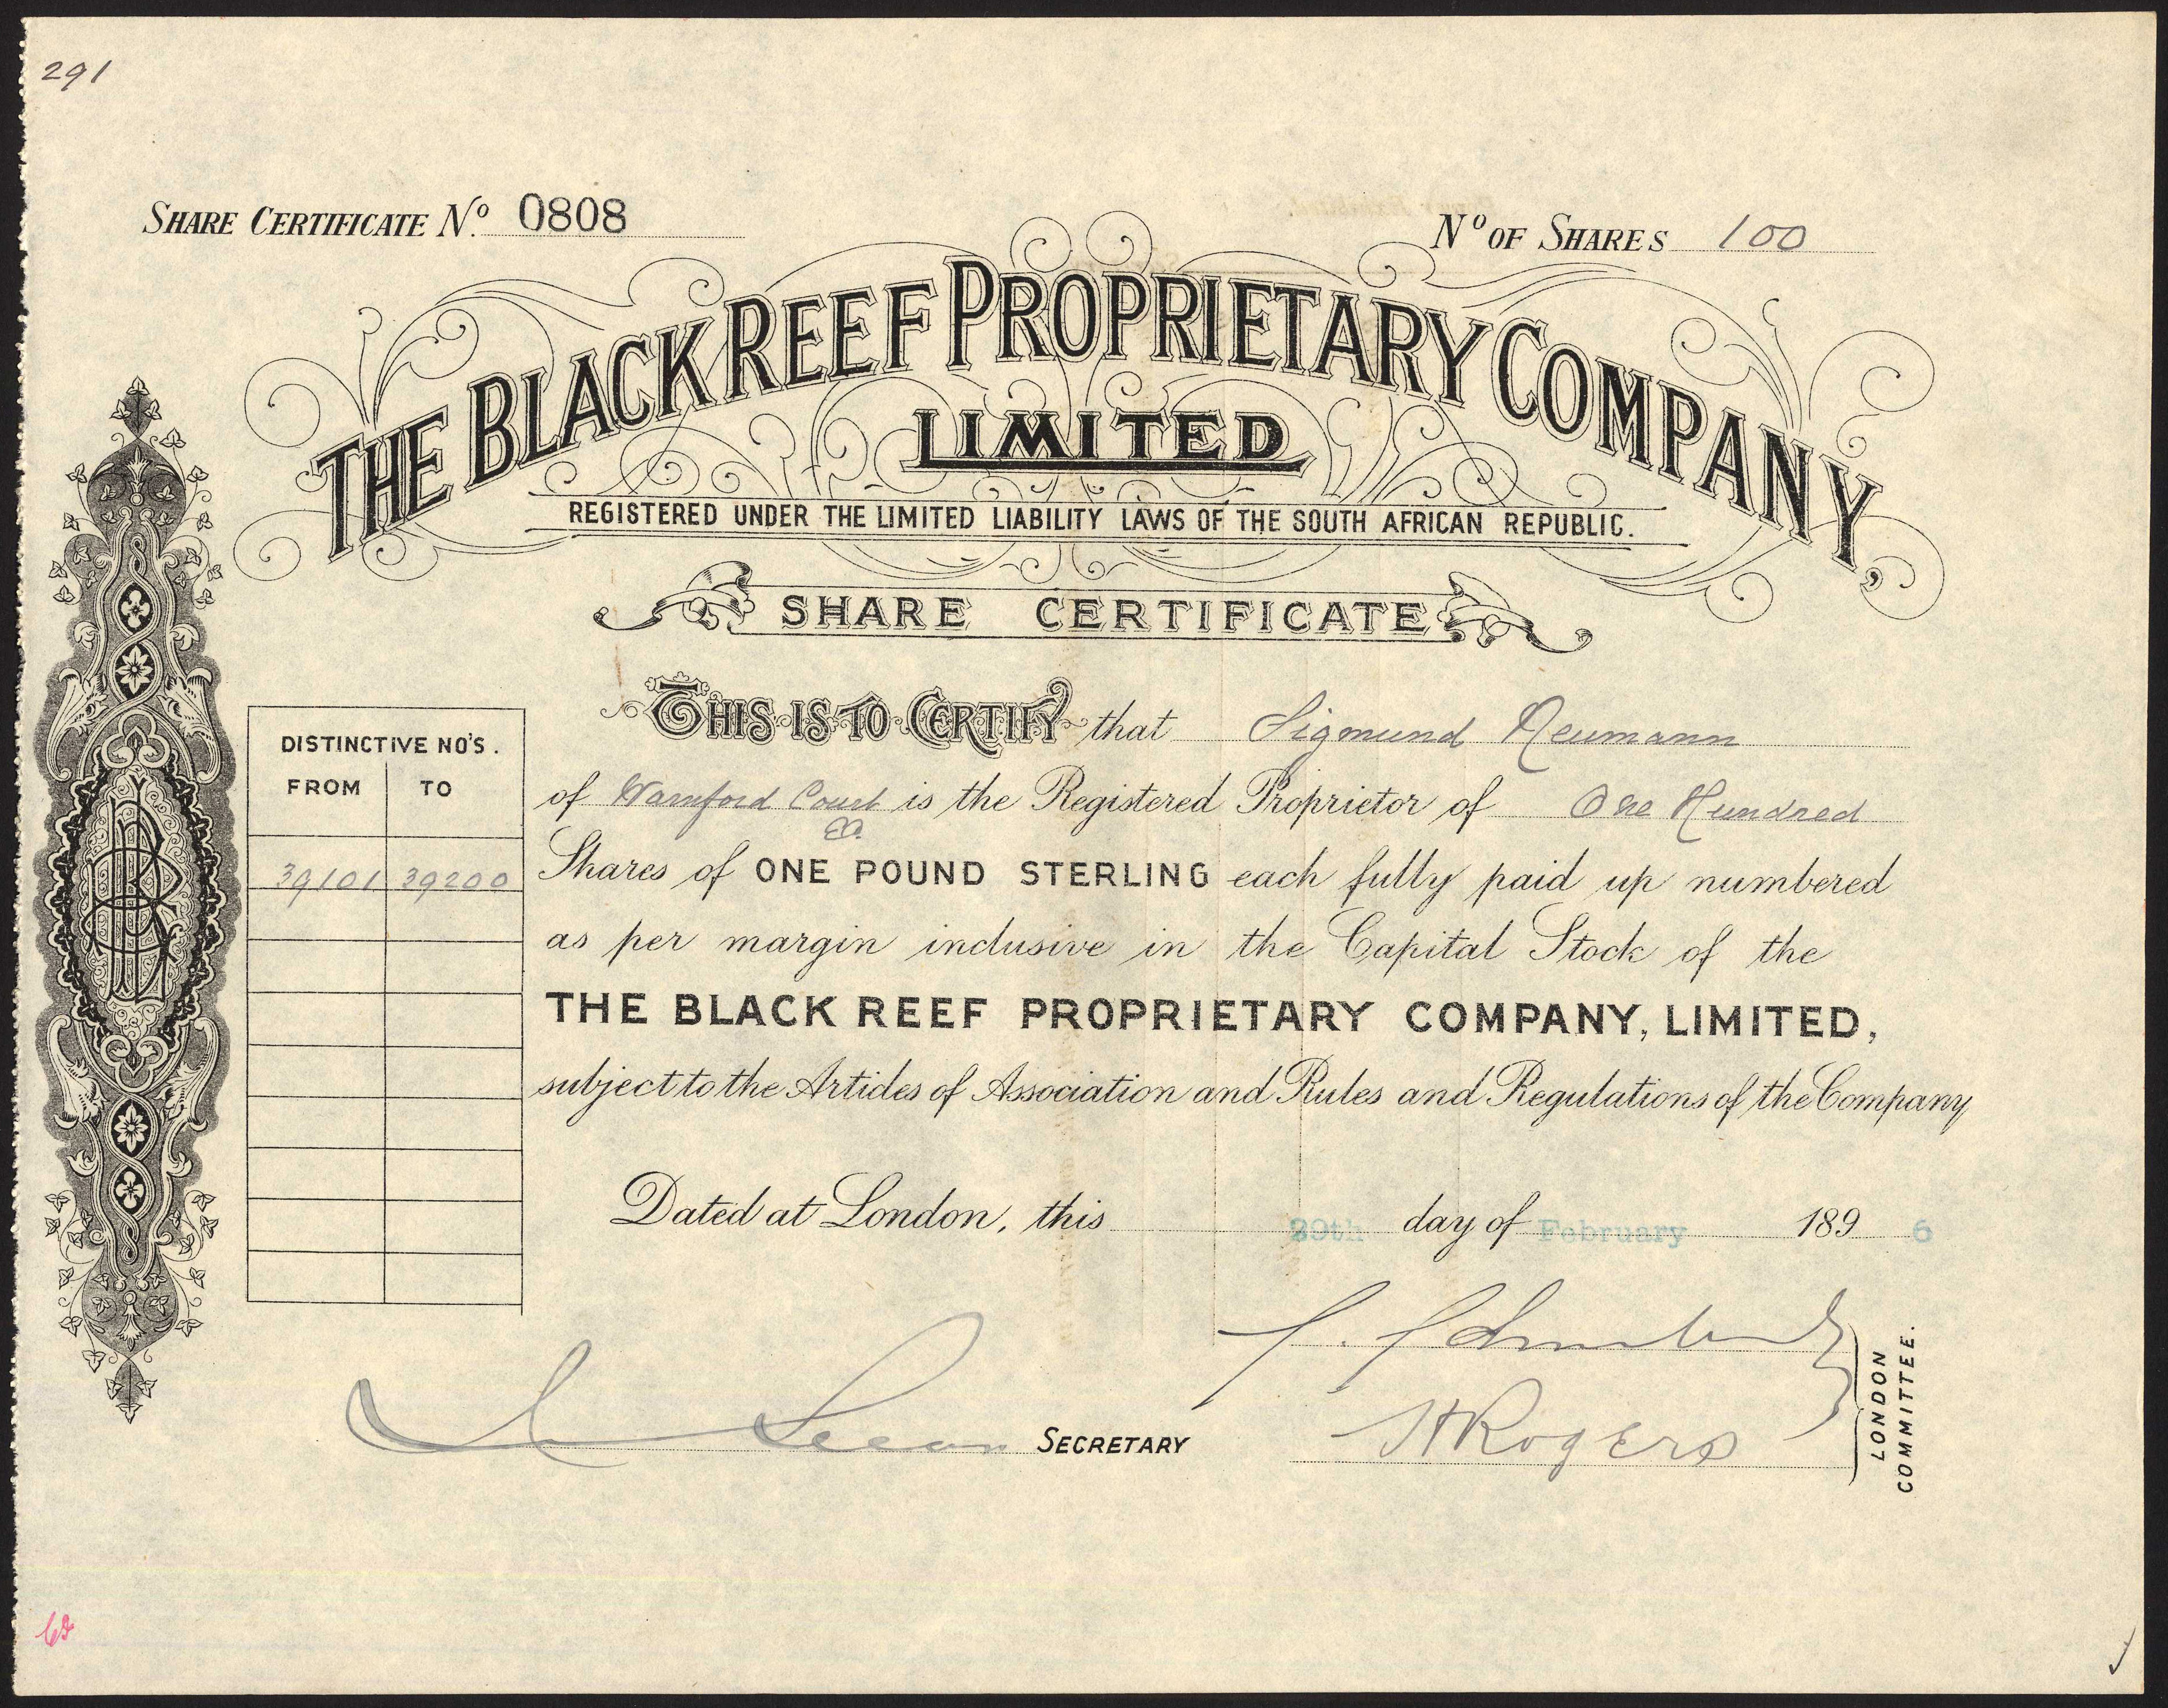 291
SHARE CERTIFICATE No. 0808
No OF SHARES 100
THE BLACK REEF PROPRIETARY COMPANY,
LIMITED
REGISTERED UNDER THE LIMITED LIABILITY LAWS OF THE SOUTH AFRICAN REPUBLIC.
SHARE CERTIFICATE
DISTINCTIVE NO'S.
FROM TO
39101 39200
THIS IS TO CERTIFY that Sigmund Neumann
of Warnford Court is the Registered Proprietor of One Hundred
EC.
Shares of ONE POUND STERLING each fully paid up numbered
as per margin inclusive in the Capital Stock of the
THE BLACK REEF PROPRIETARY COMPANY, LIMITED,
subject to the Articles of Association and Rules and Regulations of the Company
Dated at London, this day of February 189 6
SECRETARY
H Rogers
LONDON
COMMITTEE.